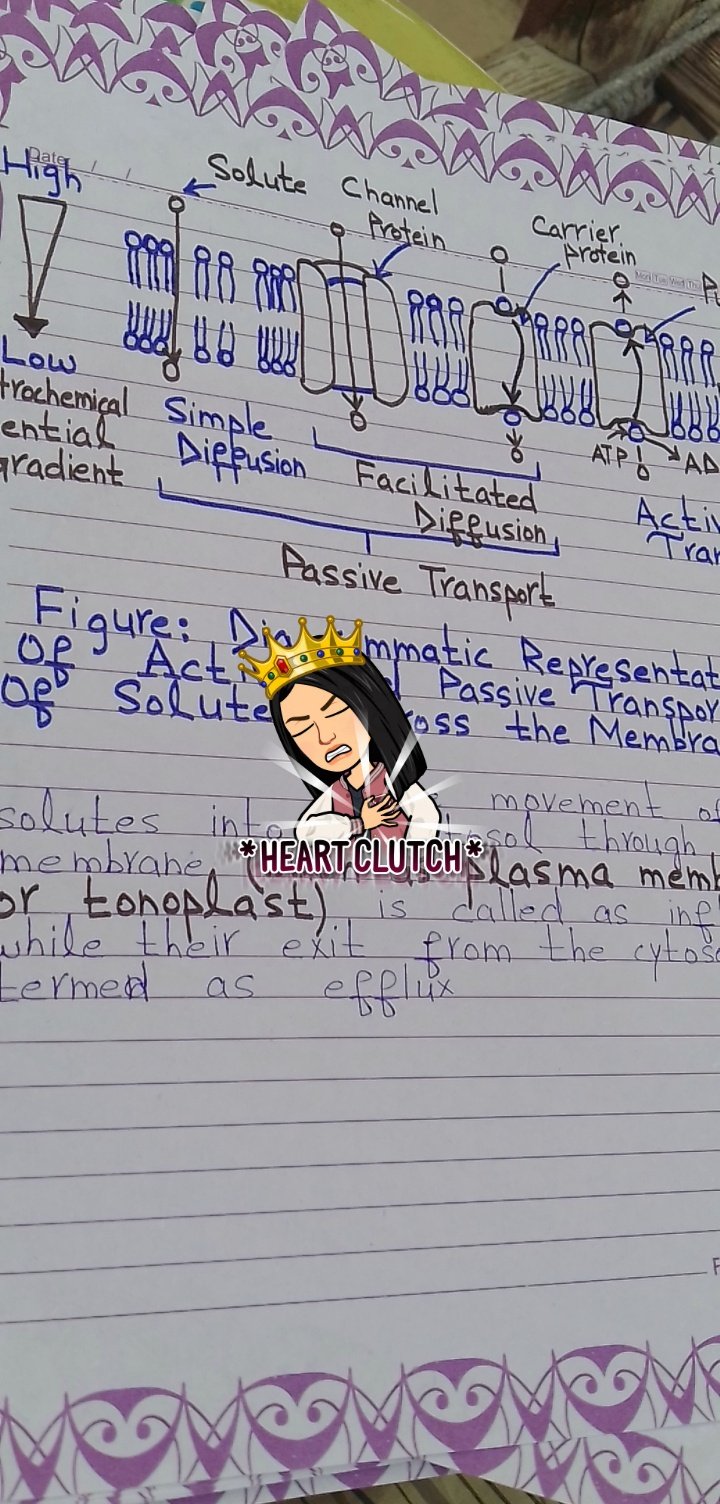 Date
High
Solute
Channel
Protein
Carrier
protein
Mon Tue Wed Thu
Low
trochemical
ential
gradient
Simple
Diffusion
Facilitated
Diffusion
ATP
AD
Activ
Tran
Passive Transport
Figure: Dia mmatic Representat
Of Act Passive Transpor
Of Solute oss the Membra
solutes into movement of
tosol through
membrane ( plasma memb
or tonoplast) is called as inf
while their exit from the cytoso
termed as efflux
*HEART CLUTCH*